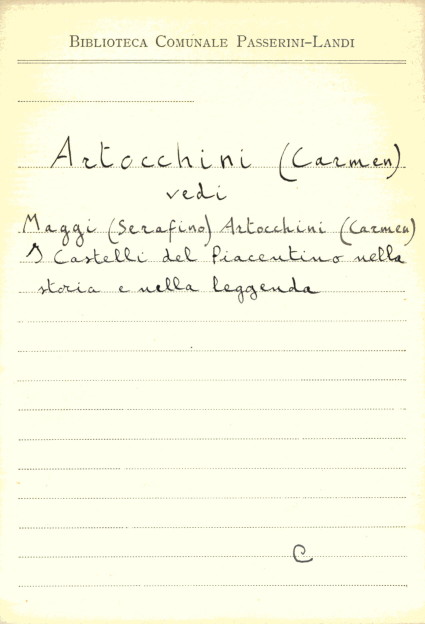 BIBLIOTECA COMUNALE PASSERINI-LANDI
Artocchini (Carmen)
vedi
Maggi (Serafino) Artocchini (Carmen)
I Castelli del Piacentino nella
storia e nella leggenda
C